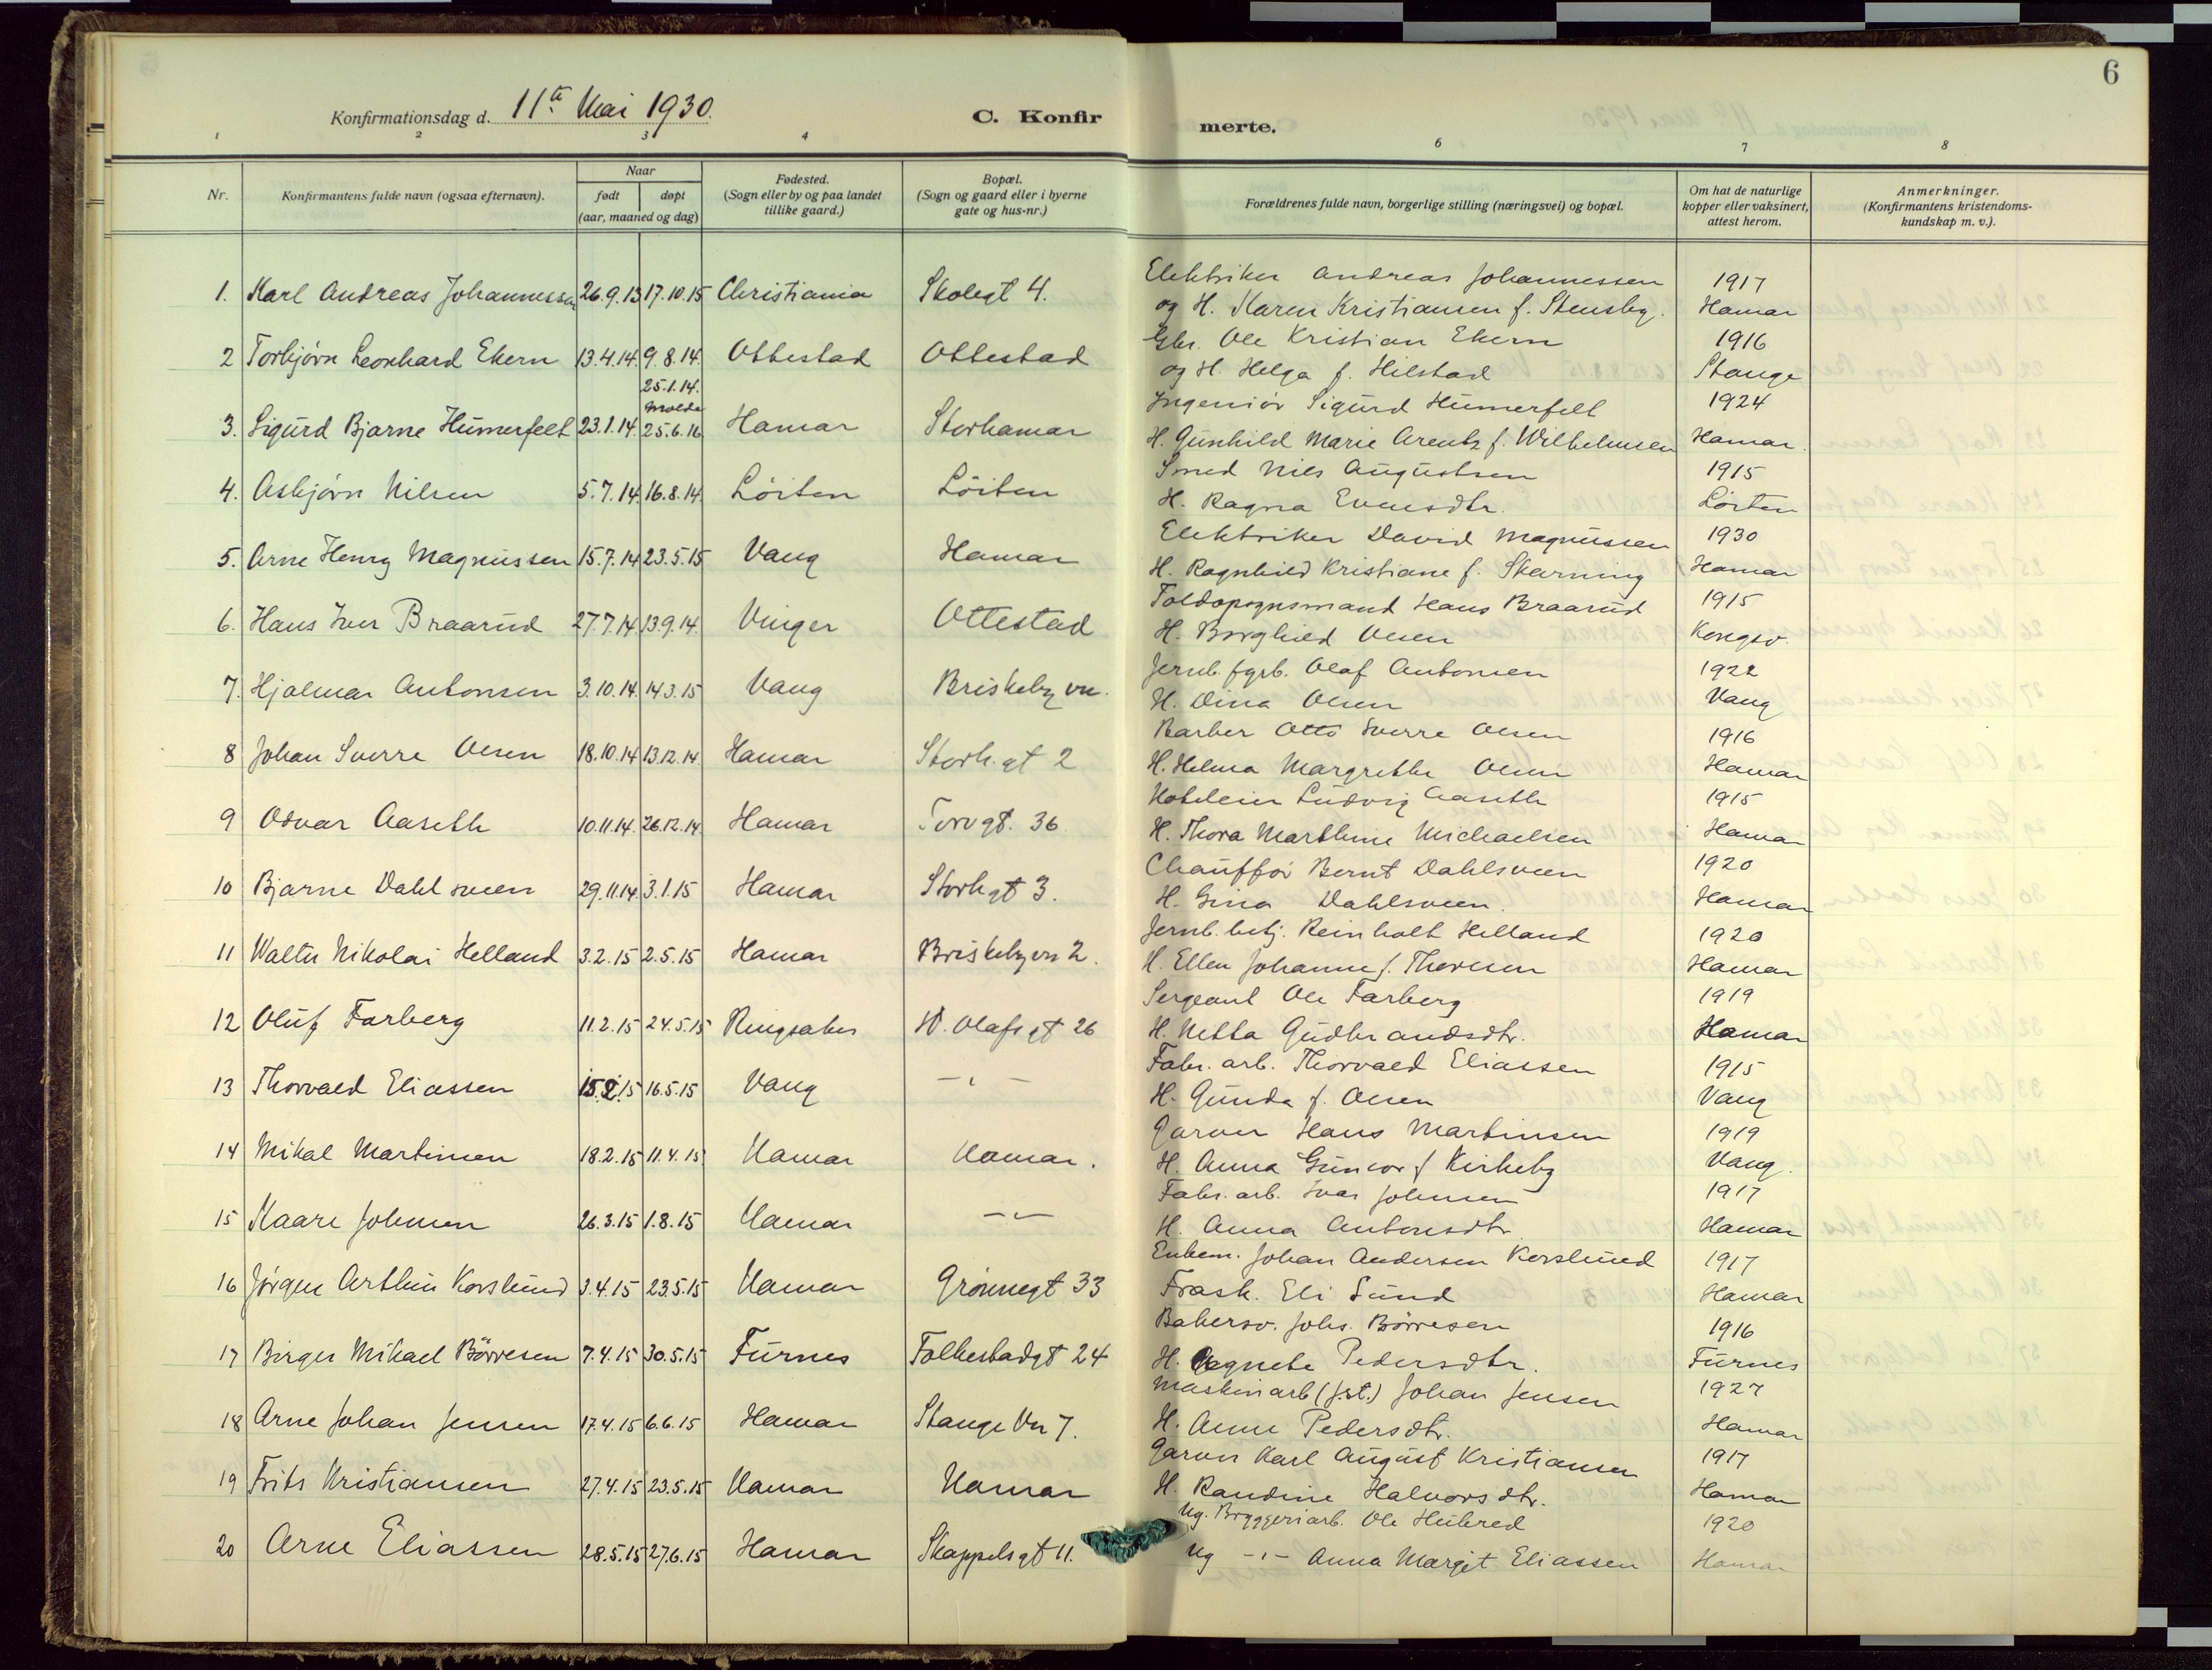 6
Konfirmationsdag d. 11te Mai 1930.
C. Konfirmerte.
1 2 3 4 6 7 8
Nr.
Konfirmantens fulde navn (ogsaa efternavn).
Naar
født
døpt
(aar, maaned og dag)
Fødested.
(Sogn eller by og paa landet
tillike gaard.)
Bopæl.
(Sogn og gaard eller i byerne
gate og hus-nr.)
Forældrenes fulde navn, borgerlige stilling (næringsvei) og bopæl.
Om hat de naturlige
kopper eller vaksinert,
attest herom.
Anmerkninger.
(Konfirmantens kristendoms-
kundskap m. v.).
1. Karl Andreas Johannessen 26.9.13 17.10.15 Christiania Skolegt 4.
Elektriker Andreas Johannessen 1917
og H. Karen Kristiansen f. Stensby. Hamar
2 Torbjørn Leonhard Ekern 13.4.14. 9.8.14. Ottestad Ottestad
Gbr. Ole Kristian Ekern 1916
og H. Helga f. Hilstad Stange
25.1.14.
Molde
3. Sigurd Bjarne Humerfelt 23.1.14. 25.6.16 Hamar Storhamar
Ingeniør Sigurd Humerfelt 1924
H. Gunhild Marie Arentz f. Wilhelmsen Hamar.
4. Asbjørn Nilsen 5.7.14. 16.8.14. Löiten Löiten
Smed Nils Augustsen 1915
H. Ragna Evensdtr. Löiten
5. Arne Henry Magnussen 15.7.14 23.5.15 Vang Hamar
Elektriker David Magnussen 1930
H. Ragnhild Kristiane f. Skarning Hamar
6. Hans Iver Braarud 27.7.14 13.9.14. Vinger Ottestad
Toldopsynsmand Hans Braarud 1915
H. Borghild Olsen Kongsv.
7. Hjalmar Antonsen 3.10.14. 14.3.15 Vang Briskeby vn.
Jernb. fgrb. Olaf Antonsen 1922
H. Dina Olsen Vang
8 Johan Sverre Olsen 18.10.14 13.12.14. Hamar Storh.gt 2
Barber Otto Sverre Olsen 1916
H. Helma Margrethe Olsen Hamar
9 Odvar Aaseth 10.11.14. 26.12.14. Hamar Torvgt. 36
Hoteleier Ludvig Aaseth 1915
H. Thora Marthine Michaelsen Hamar
10 Bjarne Dahlsveen 29.11.14. 3.1.15 Hamar Storhgt 3.
Chauffør Bernt Dahlsveen 1920
H. Gina Dahlsveen. Hamar
11 Walter Nikolai Helland 3.2.15 2.5.15 Hamar Briskebyvn 2.
Jernb. betj. Reinholt Helland 1920
H. Ellen Johanne f. Thoresen Hamar
12 Oluf Farberg 11.2.15 24.5.15 Ringsaker St. Olafs gt 26
Sergeant Ole Farberg 1919
H. Netta Gudbrandsdtr. Hamar
13 Thorvald Eliassen 15.2.15 16.5.15 Vang – " –
Fabr. arb. Thorvald Eliassen 1915
H. Gunda f. Olsen Vang
14 Mikal Martinsen 18.2.15 11.4.15 Hamar Hamar.
Garver Hans Martinsen 1919
H. Anna Guncor f Kirkeby Vang.
15 Kaare Johnsen 26.3.15 1.8.15 Hamar – " –
Fabr. arb. Ivar Johnsen 1917
H. Anna Antonsdtr. Hamar
16 Jørgen Arthur Korslund 3.4.15 23.5.15 Hamar Grönnegt 33
Enkem. Johan Andersen Korslund 1917
Frask. Eli Sund Hamar
17 Birger Mikael Börresen 7.4.15 30.5.15 Furnes Folkestadgt 24
Bakersv. Johs. Börresen 1916
H. Agnete Pedersdtr. Furnes
18 Arne Johan Jensen 17.4.15 6.6.15 Hamar Stange Vn 7.
Maskinarb (j.st.) Johan Jensen 1927
H. Anne Pedersdtr. Hamar
19 Frits Kristiansen 27.4.15 23.5.15 Hamar Hamar
Garver Karl August Kristiansen 1917
H. Randine Halvorsdtr. Hamar
20 Arne Eliassen 28.5.15 27.6.15 Hamar Skappelsgt 11.
Ug. Bryggeriarb. Ole Hubred 1920
Ug – " – Anna Margit Eliassen Hamar